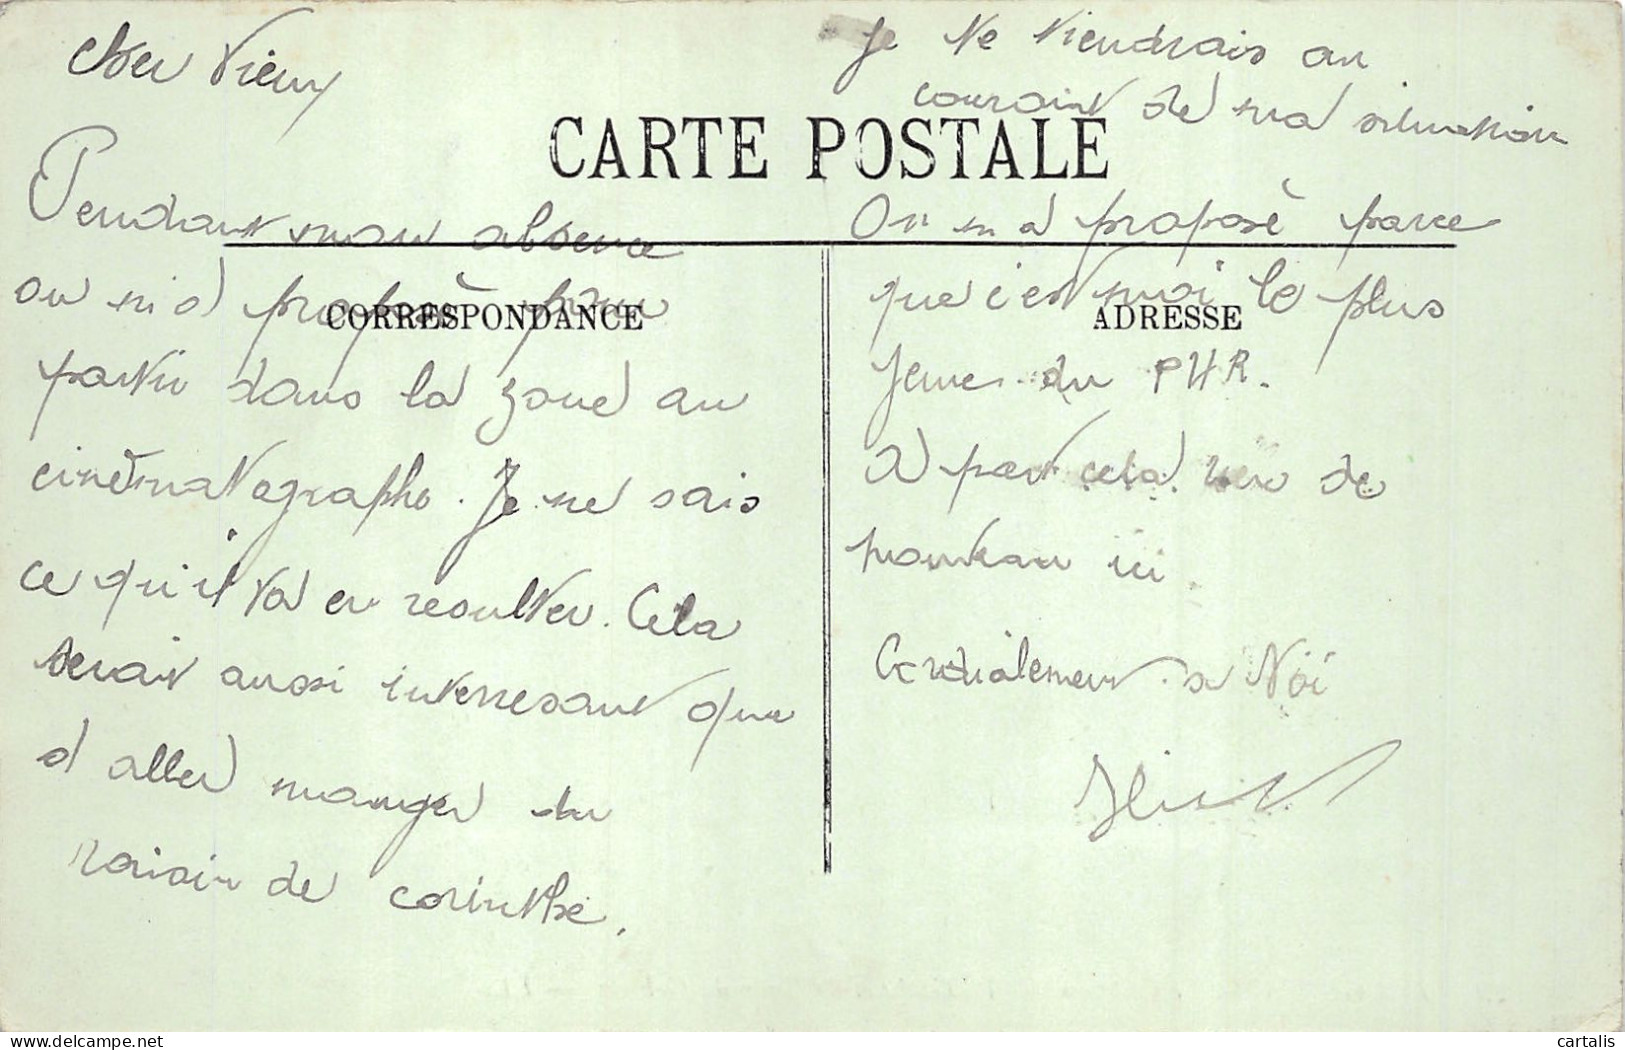 Cher Vieux
CARTE POSTALE
Pendant mon absence
CORRESPONDANCE
on m'a proposé pour
partir dans la zone au
cinématographe. Je ne sais
ce qu'il va en resulter. Cela
serait aussi interressant que
d aller manger du
raisin de corinthe.
Je te tiendrais au
courant de ma situation
On m a proposé parce
que c'est moi le plus
ADRESSE
jeune du PHR.
A part cela rien de
nouveau ici.
Cordialement a toi
cartalis.com